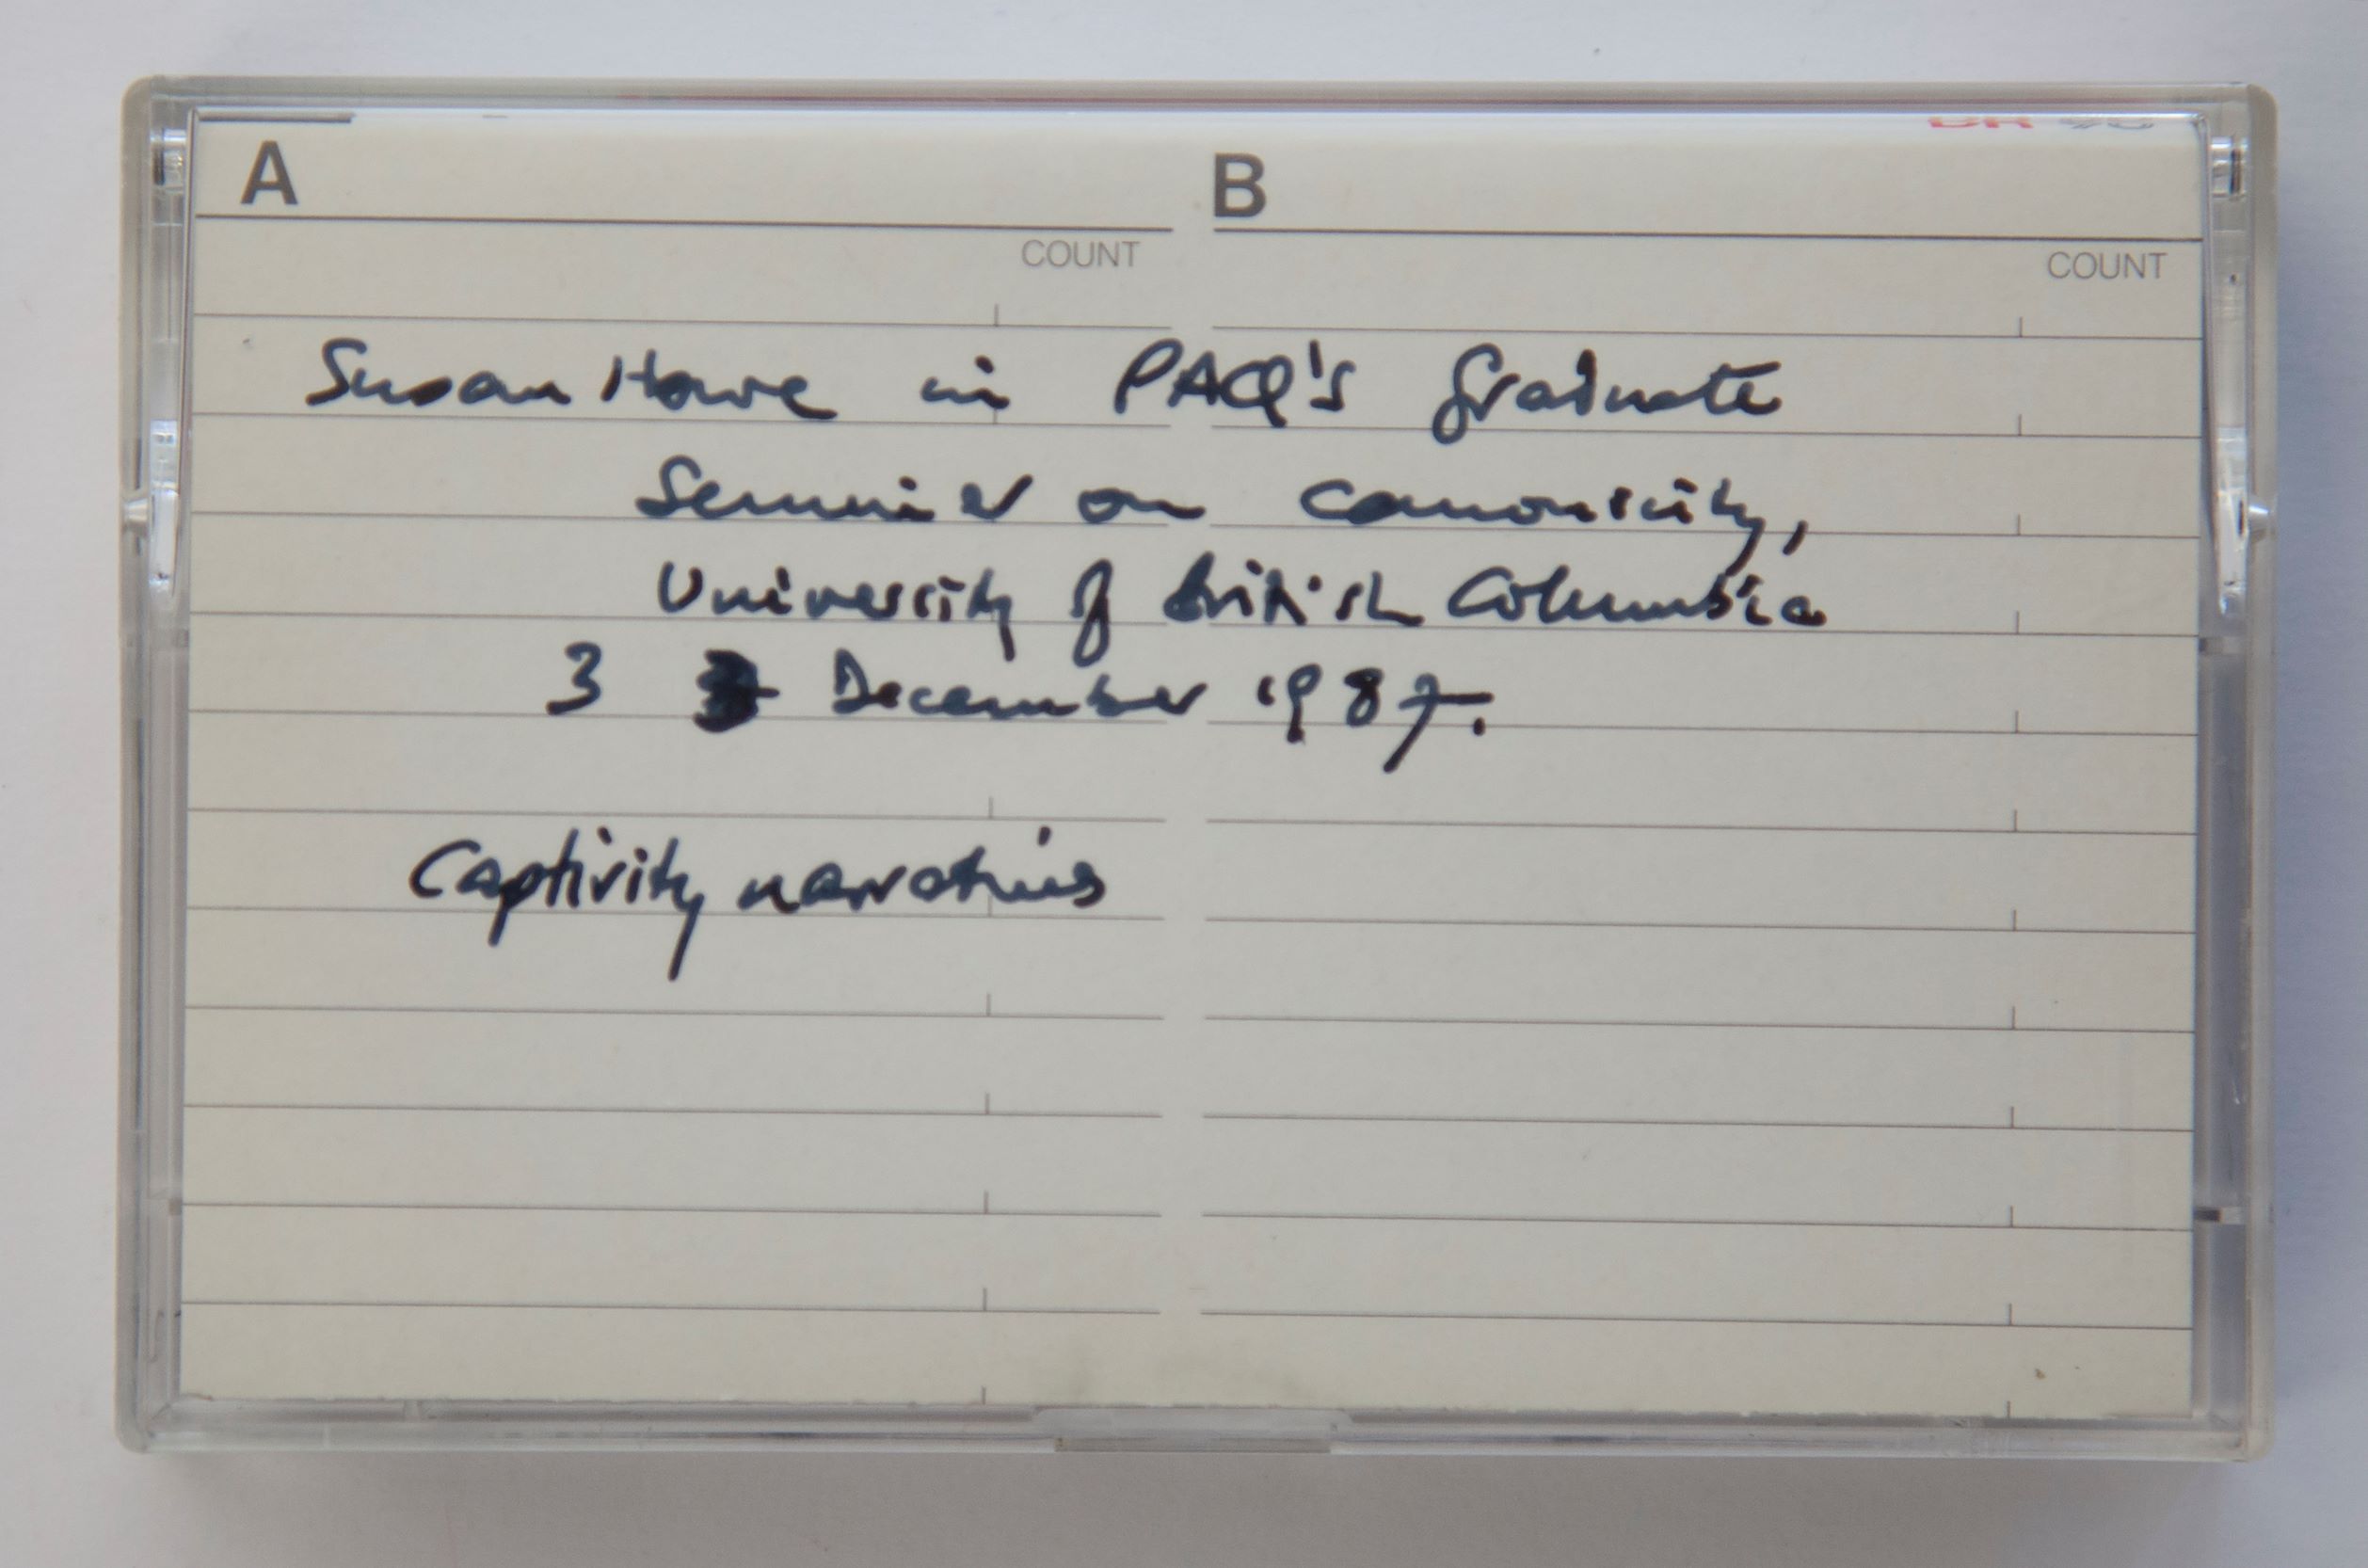 A B
COUNT COUNT
Susan Howe in PAQ's graduate
Seminar on canonicity,
University of British Columbia
3 December 1987.
Captivity narratives